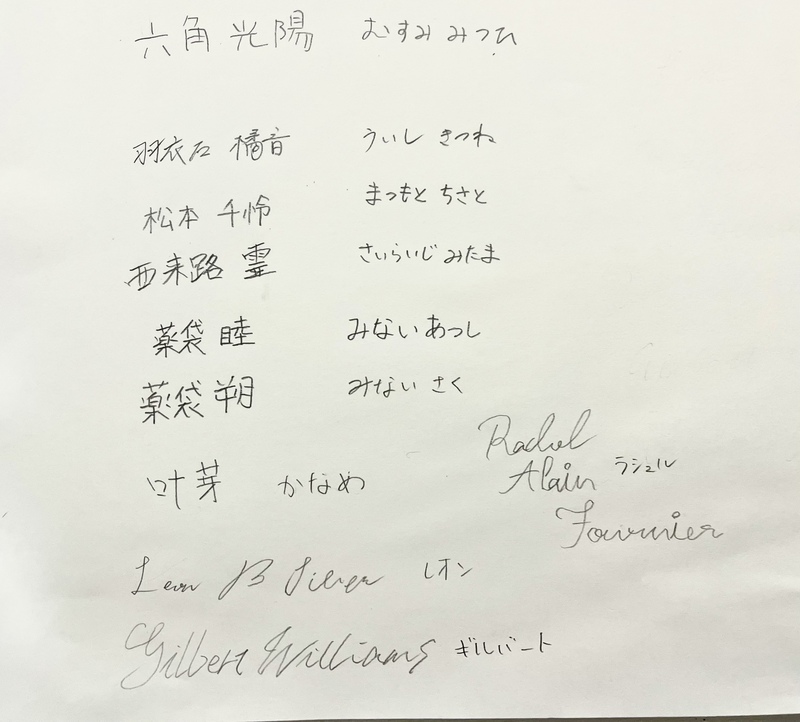 六角 光陽 むすみ みつひ
羽衣石 橘音 ういし きつね
松本 千怜 まつもと ちさと
西来路 霊 さいらいじ みたま
薬袋 睦 みない あつし
薬袋 朔 みない さく
叶芽 かなめ
Rachel
Alain ラシェル
Fournier
Leon B Silver レオン
Gilbert Williams ギルバート